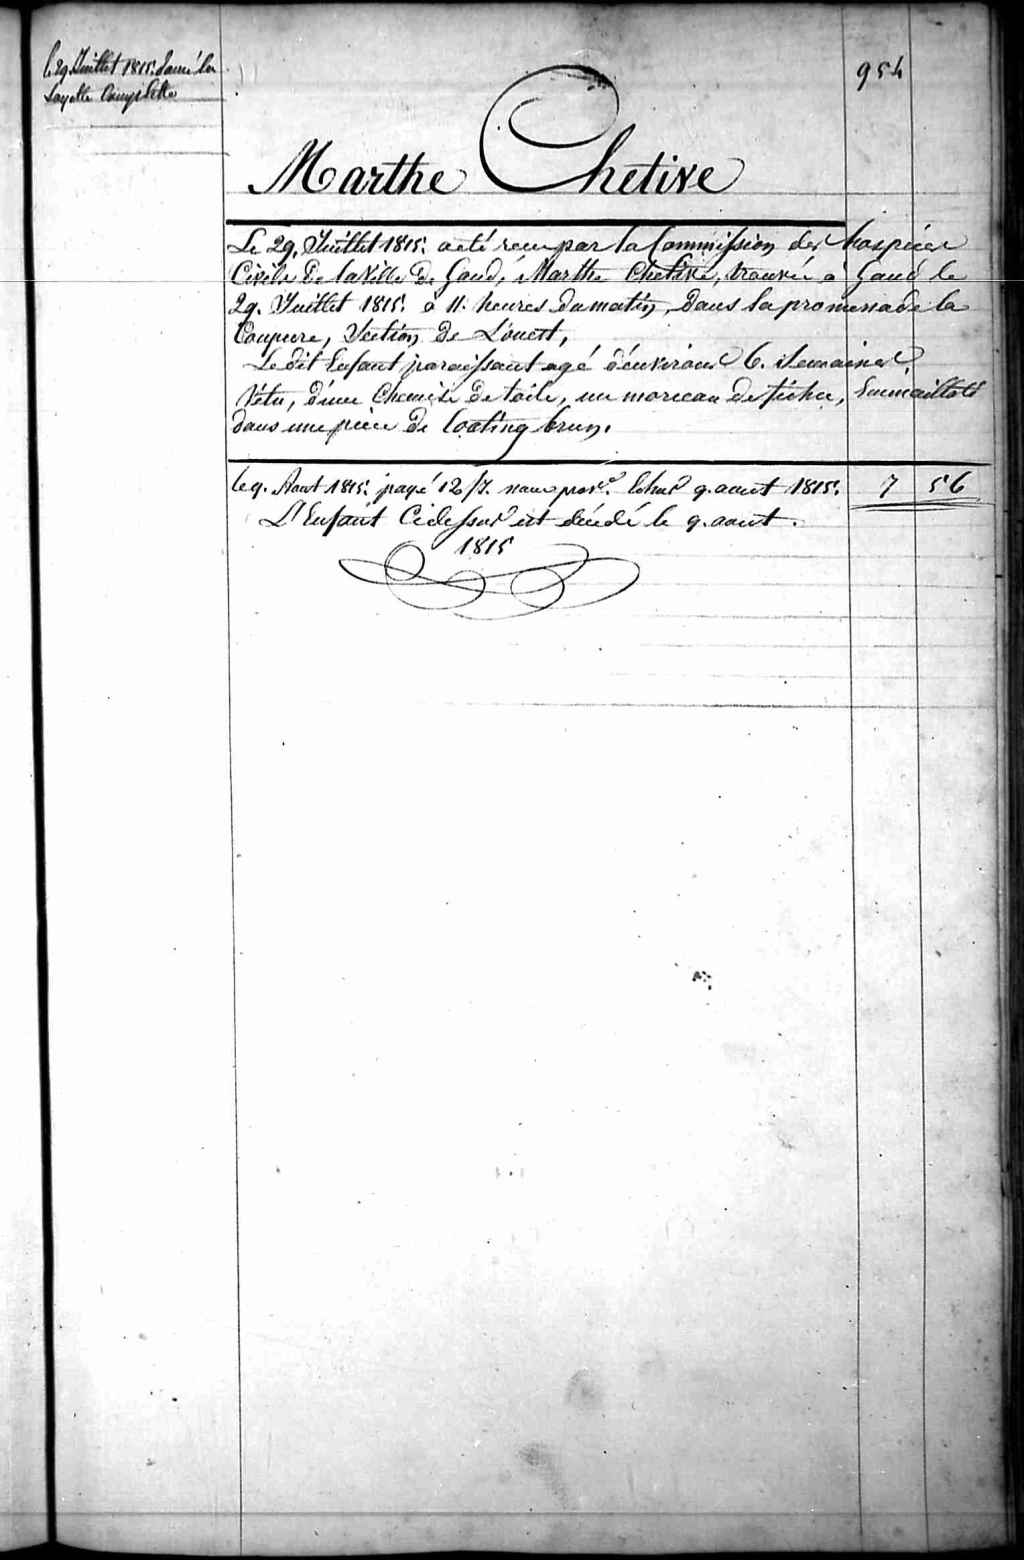 le 29 Juillet 1815. donné la
Layette Complette
954
Marthe Chetive
Le 29. Juillet 1815. a eté recu par la Commission des hospices
Civils de la Ville de Gand, Marthe Chetive, trouvée a Gand le
29. Juillet 1815. a 11. heures du matin, dans la promenade la
Coupure, Section de L'ouest,
Le dit Enfant paraissant agé d'environ 6. Semaines
Vétu, d'une Chemise de toile, un morceau de fichu, Emmailloté
dans une piece de Coating brun.
le 9. Aout 1815. payé 12 Echus 9. aout 1815. 7 56
L'Enfant Cidessus est décédé le 9. aout.
1815